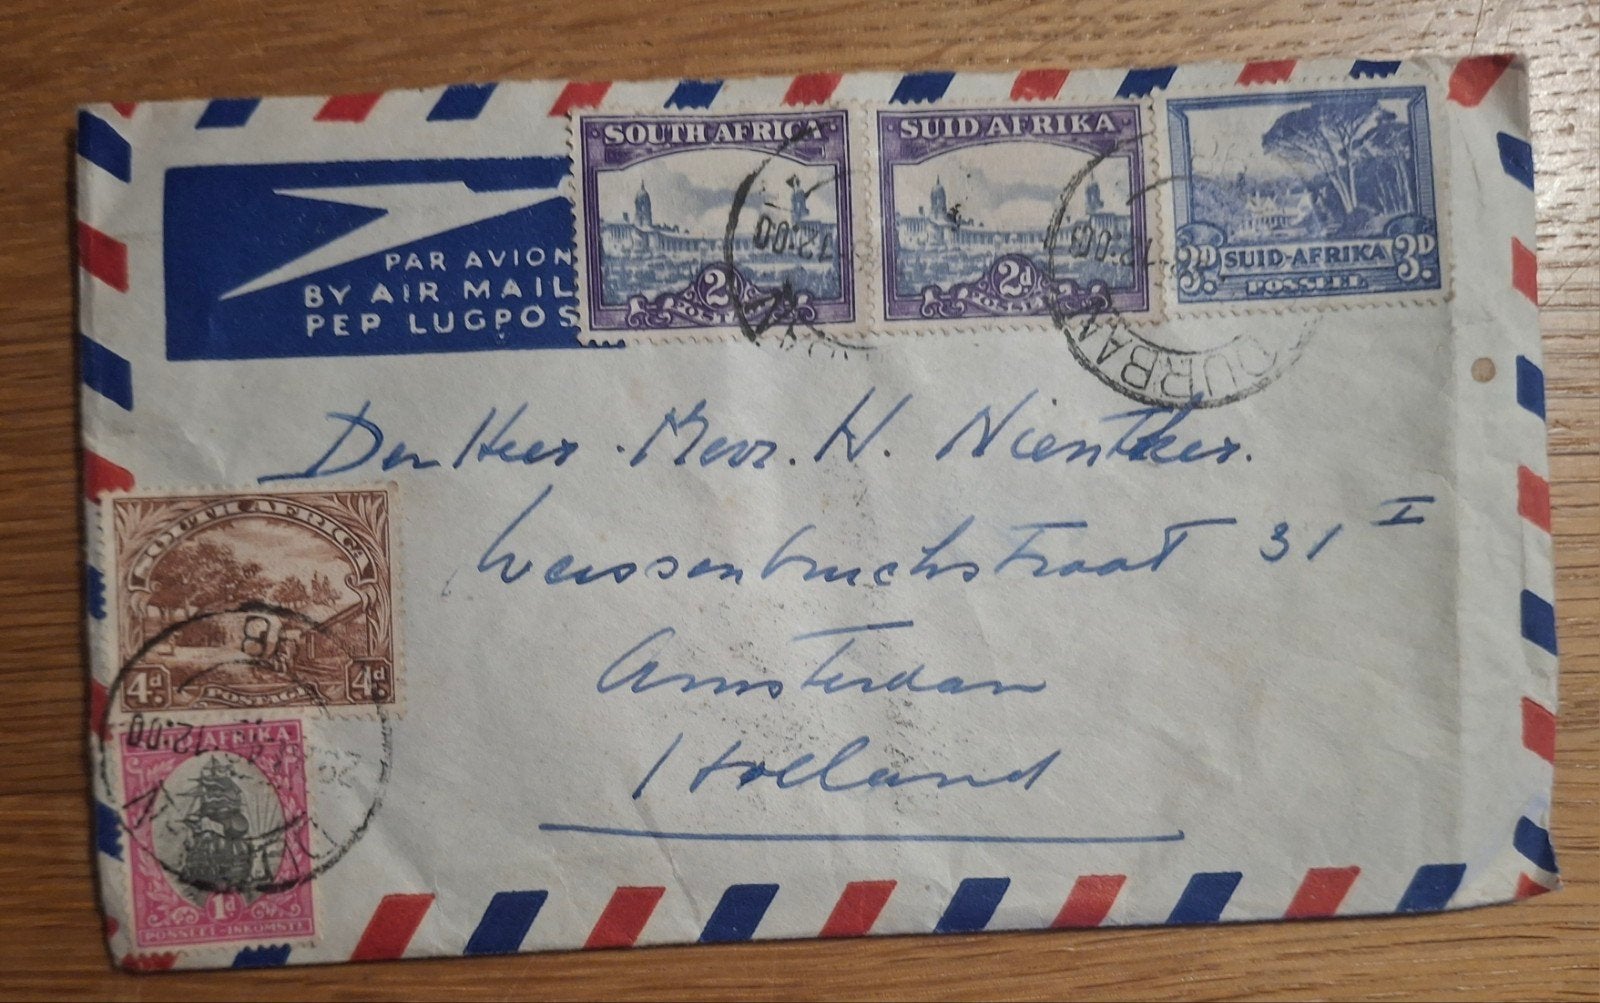 SOUTH AFRICA
2
SUID AFRIKA
2d
SUID-AFRIKA
3D. 3D.
POSSEEL
PAR AVION
BY AIR MAIL
PER LUGPOS
12:00
12:00
DURBAN
Den Heer. Mevr. H. Nienther.
Weissenbruchstraat 31 I
Amsterdam
Holland
SOUTH AFRICA
4d. 4d.
POSTAGE
12:00
AFRIKA
1d
POSSEEL-INKOMSTE